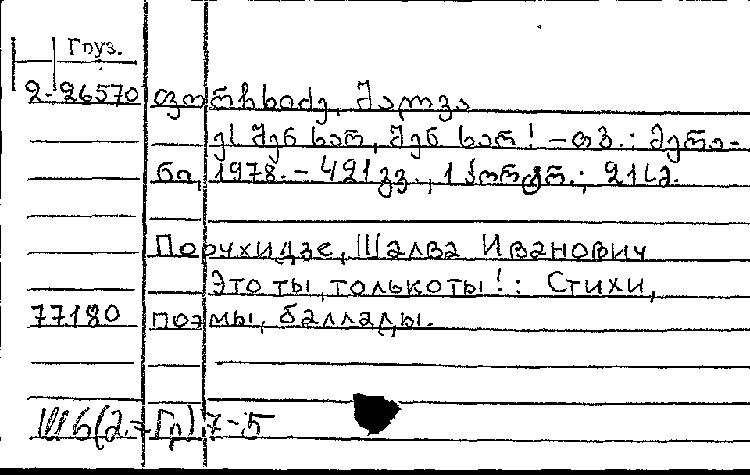 Груз.
2-26570 ფორჩხიძე, შალვა
ეს შენ ხარ, შენ ხარ! - თბ.: მერა-
ნი, 1978. - 421 გვ., 1 პორტრ.; 21 სმ.
Порчхидзе, Шалва Иванович
Это ты, только ты!: Стихи,
77180 поэмы, баллады.
Ш6(2=Гр)7-5